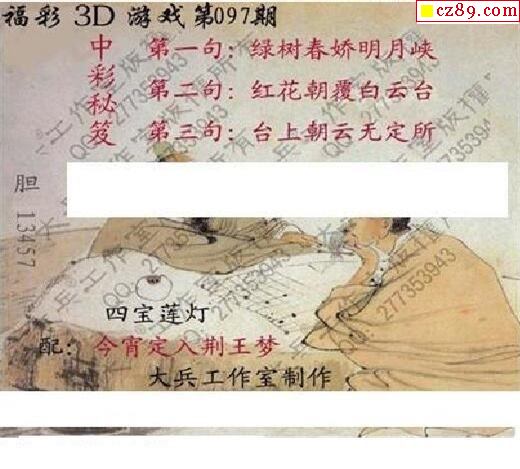 cz89.com
福彩 3D 游戏第097期
中彩秘笈
第一句：绿树春娇明月峡
第二句：红花朝覆白云台
第三句：台上朝云无定所
胆 13457
四宝莲灯
配：今宵定入荆王梦
大兵工作室制作
大兵工作室版权所有
QQ：277353943